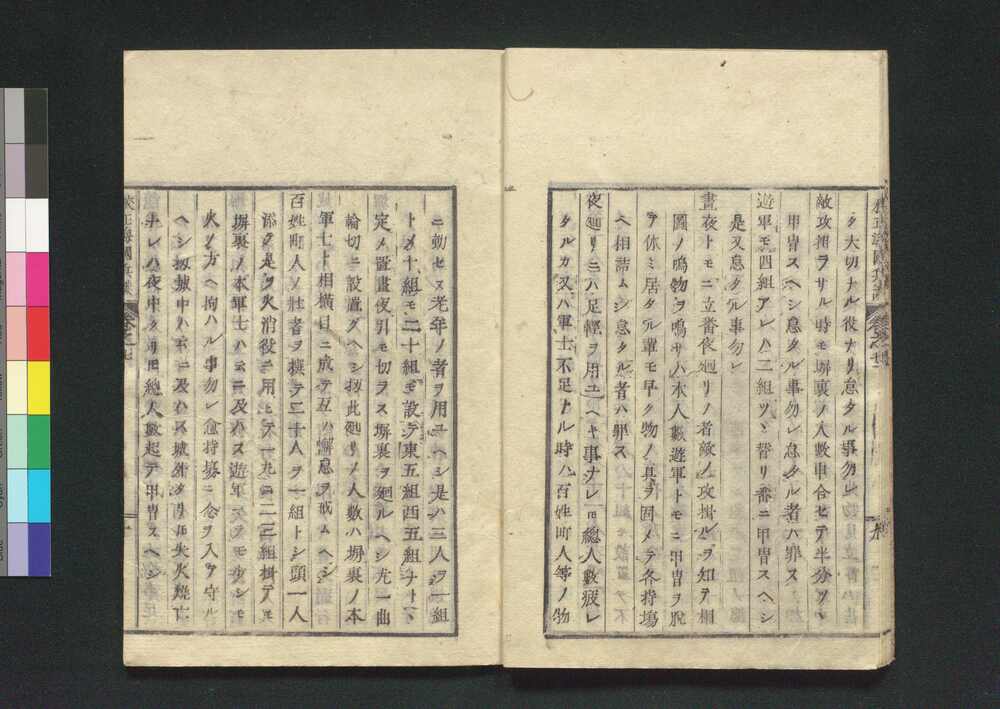 ク大切ナル役ナリ怠タル事勿レ
敵攻掛ラサル時モ塀裏ノ人數申合セテ半分ツヽ
甲冑スヘシ怠タル事勿レ怠タル者ハ罪ス
遊軍モ四組アレハ二組ツヽ替リ番ニ甲冑スヘシ
是又怠タル事勿レ
晝夜トモニ立番夜廻リノ者敵ノ攻掛ルヲ知テ相
圖ノ鳴物ヲ鳴サハ本人數遊軍トモニ甲冑ヲ脫
ラ休ミ居タル輩モ早ク物ノ具ヲ固メテ各持塲
ヘ相詰ムシ怠タル者ハ罪ス
夜廻リニハ足輕ヲ用ユヘキ事ナレ𪜈總人數疲レ
タルカ又ハ軍士不足トル時ハ百姓町人等ノ物
ニ動セヌ老年ノ者ヲ用ユヘシ是ハ三人ヲ一組
トメ十組モ二十組モ設テ東五組西五組ナトヽ
定メ置晝夜引モ切ラス塀裏ヲ廻ルヘシ尤一曲
輪切ニ設置クヘシ扨此廻リノ人數ハ塀裏ノ本
軍士ト相橫目ニ成テ互ニ懈怠ヲ戒ムヘシ
百姓町人ノ壯者ヲ撰テ二十人ヲ一組トシ頭一人
添テ是ヲ火消役ニ用ヒテ一九ニ二三組掛テノモ
塀裏ノ本軍士ハ云ニ及ハス遊軍
火ノ方ヘ拘ハル事勿レ愈持塲ニ念ヲ入テ守ル
ヘシ扨城中ハ云ニ及ハス城外タリ𪜈失火燒亡
ナレハ夜中タリ𪜈總人數起テ甲冑スヘシ